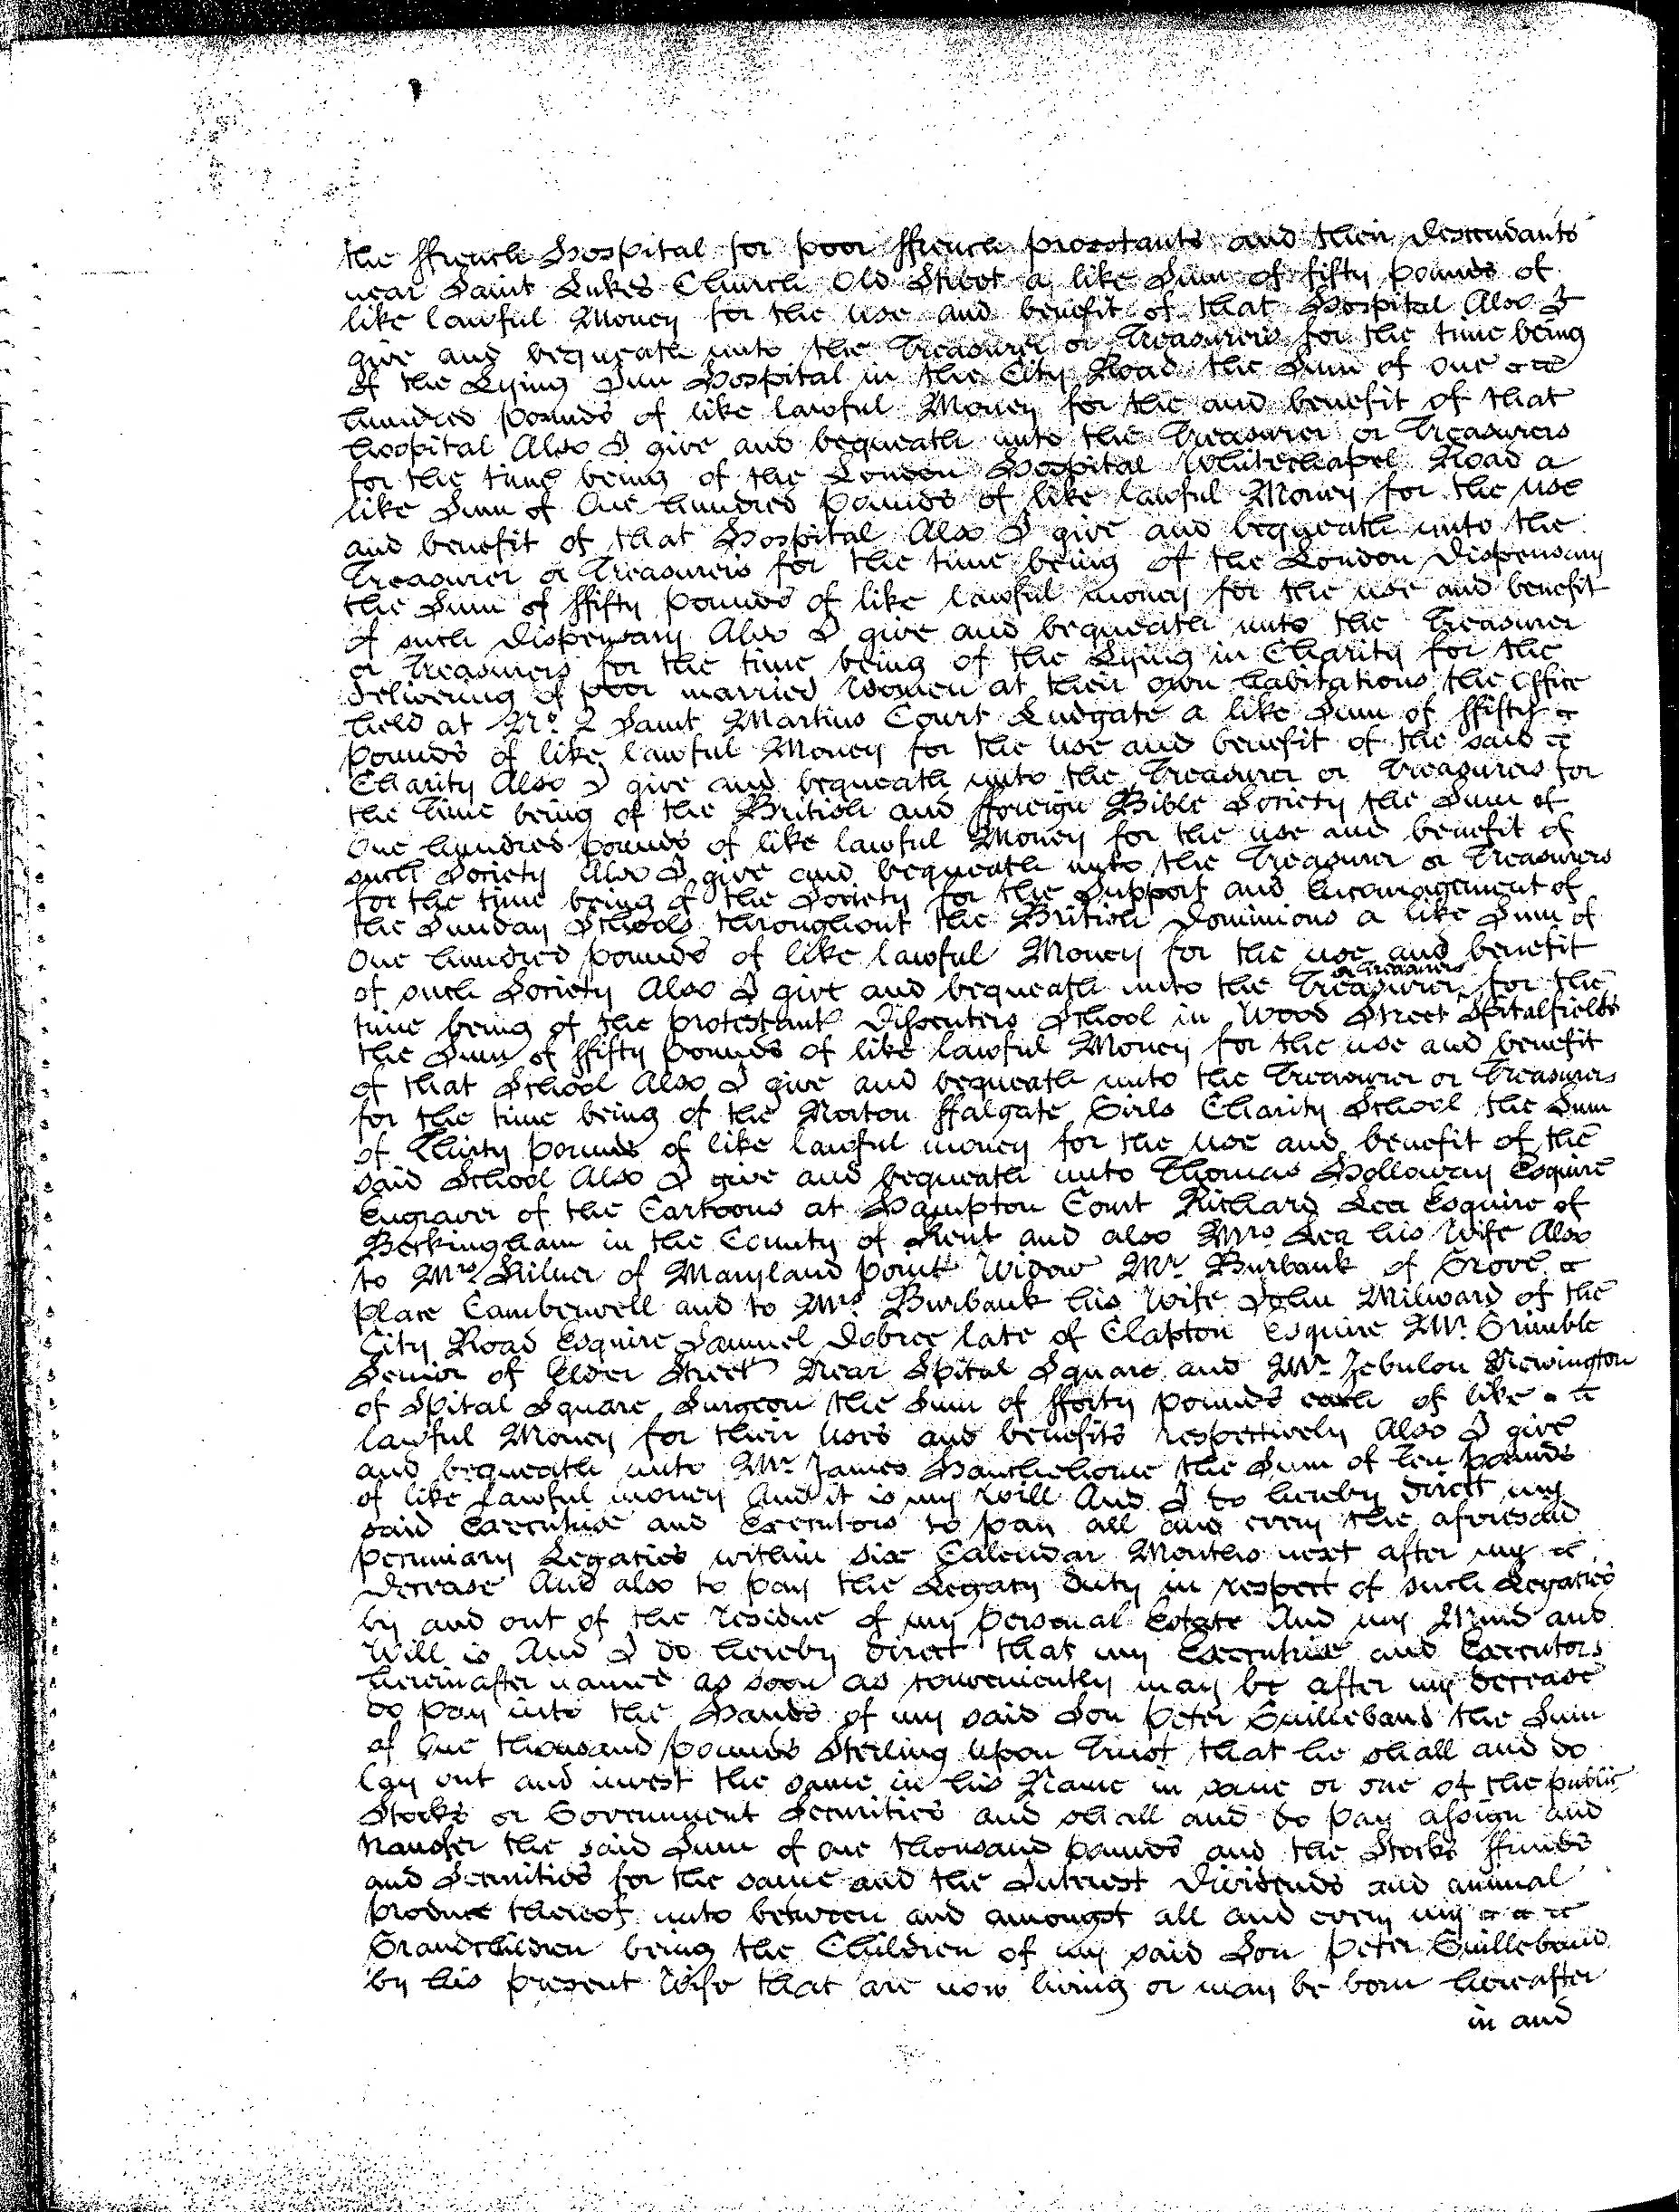 the ffrench Hospital for poor ffrench prosstants and their Descendants
near Saint Lukes Church Old Street a like Sum of fifty pounds of
like lawful Money for the use and benefit of that Hospital Also I
give and bequeath unto the Treasurer or Treasurers for the time being
of the Lying Inn Hospital in the City Road the Sum of One
hundred pounds of like lawful Money for the and benefit of that
hospital Also I give and bequeath unto the Treasurer or Treasurers
for the time being of the London Hospital Whitechapel Road a
like Sum of One hundred pounds of like lawful Money for the use
and benefit of that Hospital Also I give and bequeath unto the
Treasurer or Treasurers for the time being of the London Dispensary
the Sum of ffifty pounds of like lawful money for the use and benefit
of such Dispensary Also I give and bequeath unto the Treasurer
or Treasurers for the time being of the Lying in Charity for the
delivering of poor married Women at their own habitations the Office
held at No. 2 Saint Martins Court Ludgate a like Sum of ffifty
pounds of like lawful Money for the use and benefit of the said
Charity Also I give and bequeath unto the Treasurer or Treasurers for
the time being of the British and fforeign Bible Society the Sum of
One hundred pounds of like lawful Money for the use and benefit of
such Society Also I give and bequeath unto the Treasurer or Treasurers
for the time being of the Society for the Support and Encouragement of
the Sunday Schools throughout the British Dominions a like Sum of
One hundred pounds of like lawful Money for the use and benefit
of such Society Also I give and bequeath unto the Treasurer or Treasurers for the
time being of the protestant Dissenters School in Wood Street Spitalfields
the Sum of ffifty pounds of like lawful Money for the use and benefit
of that School Also I give and bequeath unto the Treasurer or Treasurers
for the time being of the Norton ffalgate Girls Charity School the Sum
of Thirty pounds of like lawful money for the use and benefit of the
said School Also I give and bequeath unto Thomas Holloway Esquire
Engraver of the Cartoons at Hampton Court Richard Lea Esquire of
Beckingham in the County of Kent and also Mrs Lea his Wife Also
to Mrs Silver of Maryland point Widow Mr. Burbank of Grove
place Camberwell and to Mrs. Burbank his Wife John Milward of the
City Road Esquire Samuel Dobree late of Clapton Esquire Mr. Grimble
Senior of Elder Street Near Spital Square and Mr. Zebulon Newington
of Spital Square Surgeon the Sum of fforty pounds each of like
lawful Money for their uses and benefits respectively Also I give
and bequeath unto Mr. James the Sum of Ten pounds
of like lawful money And it is my Will And I do hereby direct my
said Executrix and Executors to pay all and every the aforesaid
pecuniary Legacies within six Calendar Months next after my
decease And also to pay the Legacy Duty in respect of such Legacies
by and out of the residue of my personal Estate And my Mind and
Will is And I do hereby direct that my Executrix and Executors
hereinafter named as soon as conveniently may be after my decease
do pay into the Hands of my said Son Peter Guillebaud the Sum
of One thousand pounds Sterling Upon Trust that he shall and do
lay out and invest the same in his Name in some or one of the public
Stocks or Government Securities and shall and do pay assign and
transfer the said Sum of one thousand pounds and the Stocks ffunds
and Securities for the same and the Interest Dividends and annual
produce thereof unto between and amongst all and every my
Grandchildren being the Children of my said Son Peter Guillebaud
by his present Wife that are now living or may be born hereafter
in and